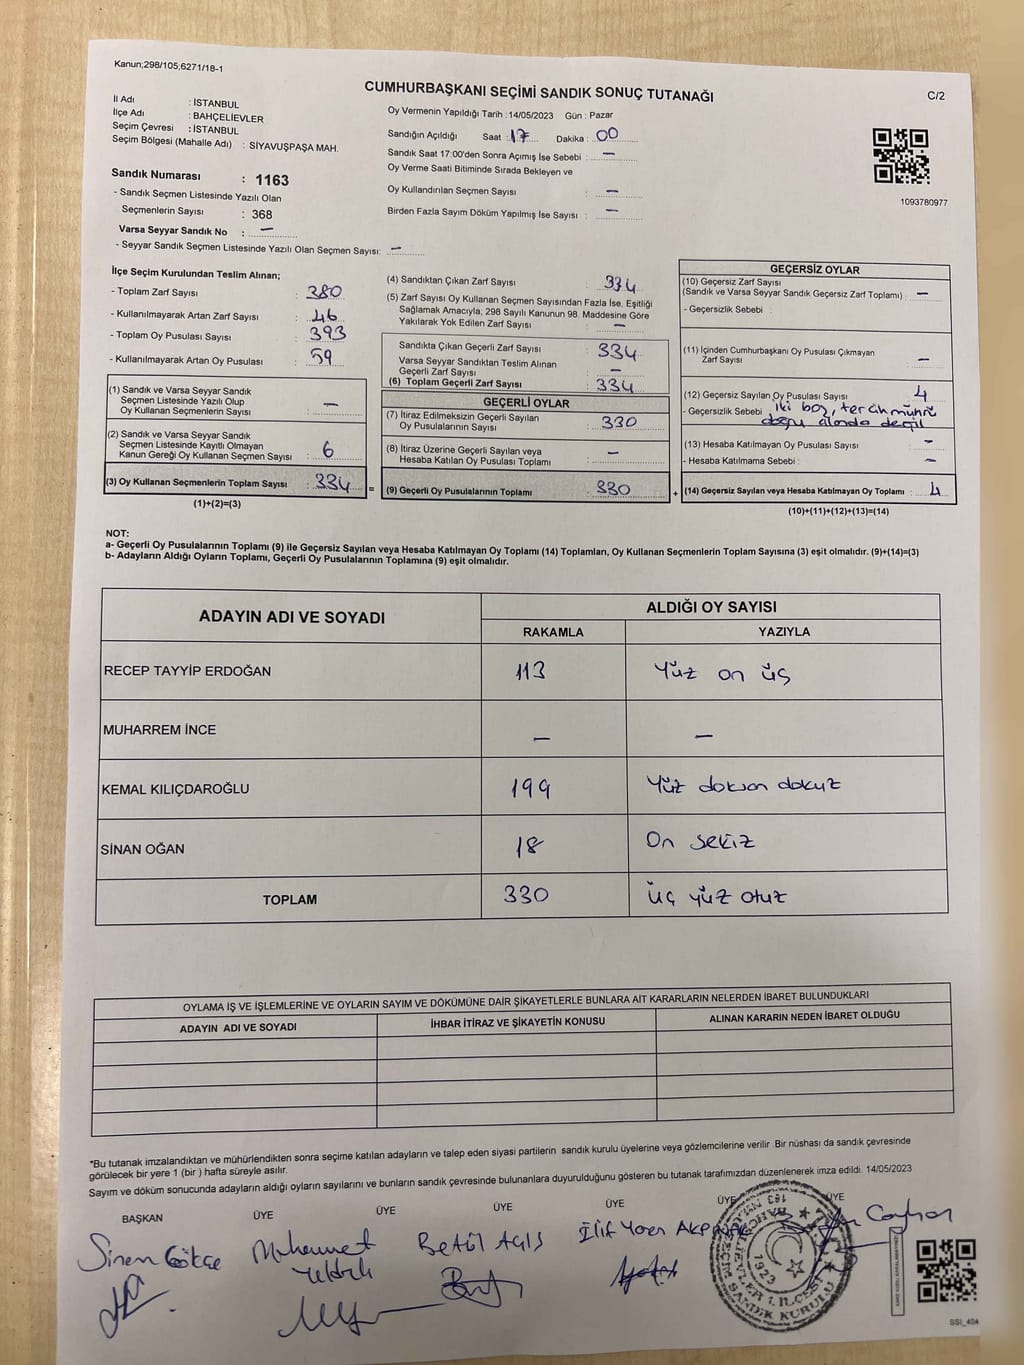 Kanun;298/105;6271/18-1
C/2
CUMHURBAŞKANI SEÇİMİ SANDIK SONUÇ TUTANAĞI
İl Adı : İSTANBUL
İlçe Adı : BAHÇELİEVLER
Seçim Çevresi : İSTANBUL
Seçim Bölgesi (Mahalle Adı) : SİYAVUŞPAŞA MAH.
Sandık Numarası : 1163
- Sandık Seçmen Listesinde Yazılı Olan
Seçmenlerin Sayısı : 368
Varsa Seyyar Sandık No : —
- Seyyar Sandık Seçmen Listesinde Yazılı Olan Seçmen Sayısı: —
Oy Vermenin Yapıldığı Tarih : 14/05/2023 Gün : Pazar
Sandığın Açıldığı Saat : 17 Dakika : 00
Sandık Saat 17:00'den Sonra Açımış İse Sebebi : —
Oy Verme Saati Bitiminde Sırada Bekleyen ve
Oy Kullandırılan Seçmen Sayısı : —
Birden Fazla Sayım Döküm Yapılmış İse Sayısı : —
1093780977
İlçe Seçim Kurulundan Teslim Alınan;
- Toplam Zarf Sayısı : 380
- Kullanılmayarak Artan Zarf Sayısı : 46
- Toplam Oy Pusulası Sayısı : 393
- Kullanılmayarak Artan Oy Pusulası : 59
(1) Sandık ve Varsa Seyyar Sandık
Seçmen Listesinde Yazılı Olup
Oy Kullanan Seçmenlerin Sayısı : —
(2) Sandık ve Varsa Seyyar Sandık
Seçmen Listesinde Kayıtlı Olmayan
Kanun Gereği Oy Kullanan Seçmen Sayısı : 6
(3) Oy Kullanan Seçmenlerin Toplam Sayısı : 334 =
(1)+(2)=(3)
(4) Sandıktan Çıkan Zarf Sayısı : 334
(5) Zarf Sayısı Oy Kullanan Seçmen Sayısından Fazla İse, Eşitliği
Sağlamak Amacıyla, 298 Sayılı Kanunun 98. Maddesine Göre
Yakılarak Yok Edilen Zarf Sayısı : —
Sandıkta Çıkan Geçerli Zarf Sayısı : 334
Varsa Seyyar Sandıktan Teslim Alınan
Geçerli Zarf Sayısı : —
(6) Toplam Geçerli Zarf Sayısı : 334
GEÇERLİ OYLAR
(7) İtiraz Edilmeksizin Geçerli Sayılan
Oy Pusulalarının Sayısı : 330
(8) İtiraz Üzerine Geçerli Sayılan veya
Hesaba Katılan Oy Pusulası Toplamı : —
(9) Geçerli Oy Pusulalarının Toplamı : 330 +
GEÇERSİZ OYLAR
(10) Geçersiz Zarf Sayısı
(Sandık ve Varsa Seyyar Sandık Geçersiz Zarf Toplamı) : —
- Geçersizlik Sebebi :
(11) İçinden Cumhurbaşkanı Oy Pusulası Çıkmayan
Zarf Sayısı : —
(12) Geçersiz Sayılan Oy Pusulası Sayısı : 4
- Geçersizlik Sebebi : İki boş, tercih mührü
doğru alanda değil
(13) Hesaba Katılmayan Oy Pusulası Sayısı : —
- Hesaba Katılmama Sebebi : —
(14) Geçersiz Sayılan veya Hesaba Katılmayan Oy Toplamı : 4
(10)+(11)+(12)+(13)=(14)
NOT:
a- Geçerli Oy Pusulalarının Toplamı (9) ile Geçersiz Sayılan veya Hesaba Katılmayan Oy Toplamı (14) Toplamları, Oy Kullanan Seçmenlerin Toplam Sayısına (3) eşit olmalıdır. (9)+(14)=(3)
b- Adayların Aldığı Oyların Toplamı, Geçerli Oy Pusulalarının Toplamına (9) eşit olmalıdır.
ADAYIN ADI VE SOYADI
ALDIĞI OY SAYISI
RAKAMLA YAZIYLA
RECEP TAYYİP ERDOĞAN 113 Yüz on üç
MUHARREM İNCE — —
KEMAL KILIÇDAROĞLU 199 Yüz doksan dokuz
SİNAN OĞAN 18 On sekiz
TOPLAM 330 üç yüz otuz
OYLAMA İŞ VE İŞLEMLERİNE VE OYLARIN SAYIM VE DÖKÜMÜNE DAİR ŞİKAYETLERLE BUNLARA AİT KARARLARIN NELERDEN İBARET BULUNDUKLARI
ADAYIN ADI VE SOYADI İHBAR İTİRAZ VE ŞİKAYETİN KONUSU ALINAN KARARIN NEDEN İBARET OLDUĞU
*Bu tutanak imzalandıktan ve mühürlendikten sonra seçime katılan adayların ve talep eden siyasi partilerin sandık kurulu üyelerine veya gözlemcilerine verilir .Bir nüshası da sandık çevresinde
görülecek bir yere 1 (bir ) hafta süreyle asılır.
Sayım ve döküm sonucunda adayların aldığı oyların sayılarını ve bunların sandık çevresinde bulunanlara duyurulduğunu gösteren bu tutanak tarafımızdan düzenlenerek imza edildi. 14/05/2023
BAŞKAN ÜYE ÜYE ÜYE ÜYE ÜYE ÜYE
Sinem Gökçe Muhammet Betül Açış Elif Yaren Ceyhan
1923
BAHÇELİEVLER 1. İLÇESİ
SEÇİM SANDIK KURULU